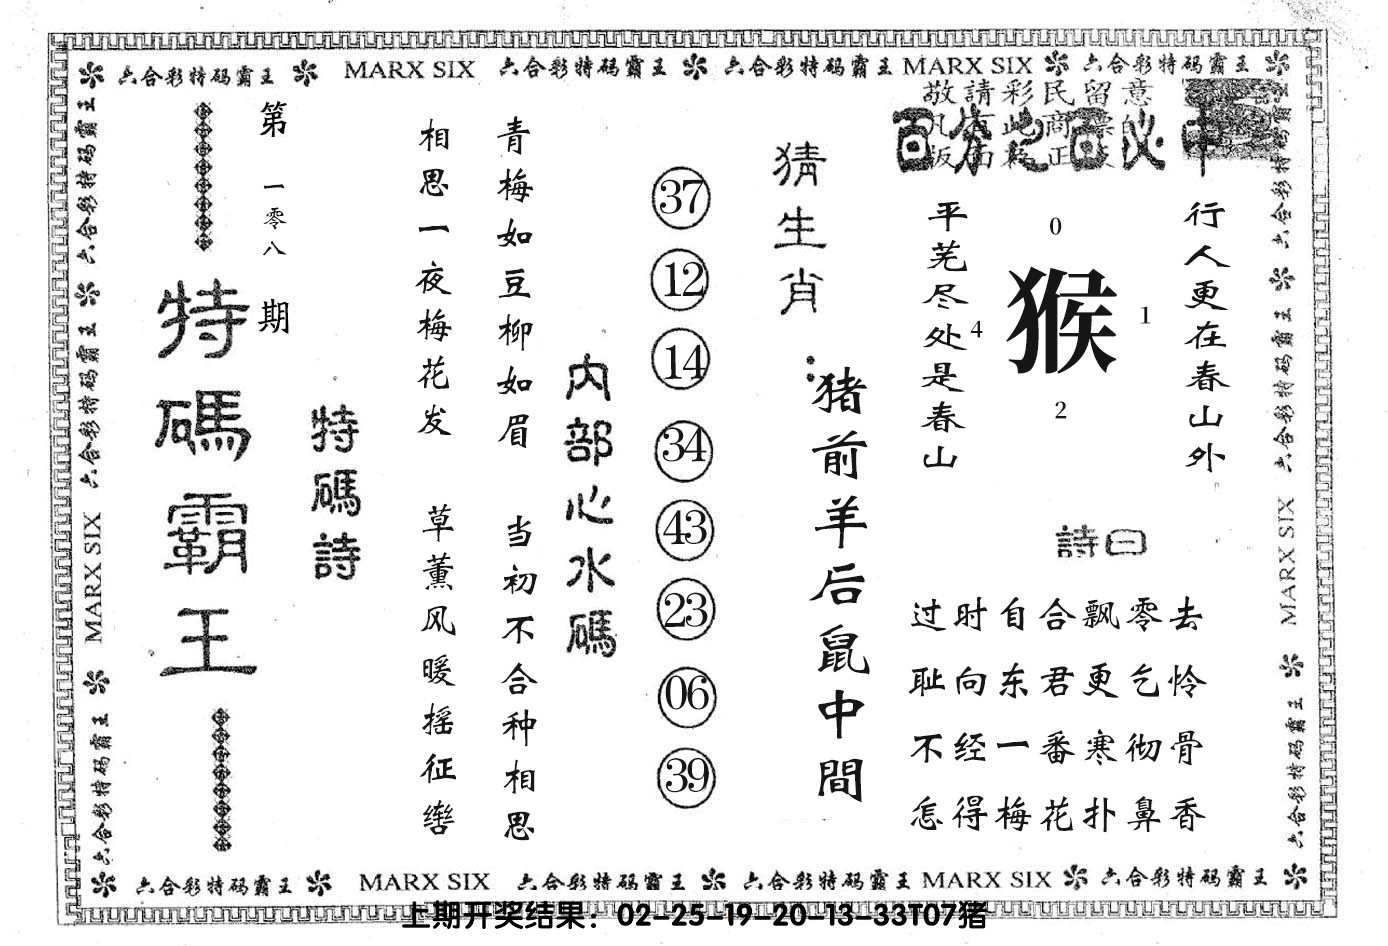 六合彩特码霸王 MARX SIX 六合彩特码霸王 六合彩特码霸王 MARX SIX 六合彩特码霸王
六合彩特码霸王 六合彩特码霸王 MARX SIX 六合彩特码霸王
第一零八期
特碼霸王
特碼詩
相思一夜梅花发 草薰风暖摇征辔
青梅如豆柳如眉 当初不合种相思
内部心水碼
37
12
14
34
43
23
06
39
猜生肖:
猪前羊后鼠中間
敬請彩民留意
百分之百必中
平芜尽处是春山
0
4
猴
1
2
行人更在春山外
詩曰
过时自合飘零去
耻向东君更乞怜
不经一番寒彻骨
怎得梅花扑鼻香
六合彩特码霸王 六合彩特码霸王 MARX SIX 六合彩特码霸王
六合彩特码霸王 MARX SIX 六合彩特码霸王 六合彩特码霸王 MARX SIX 六合彩特码霸王
上期开奖结果：02-25-19-20-13-33T07猪